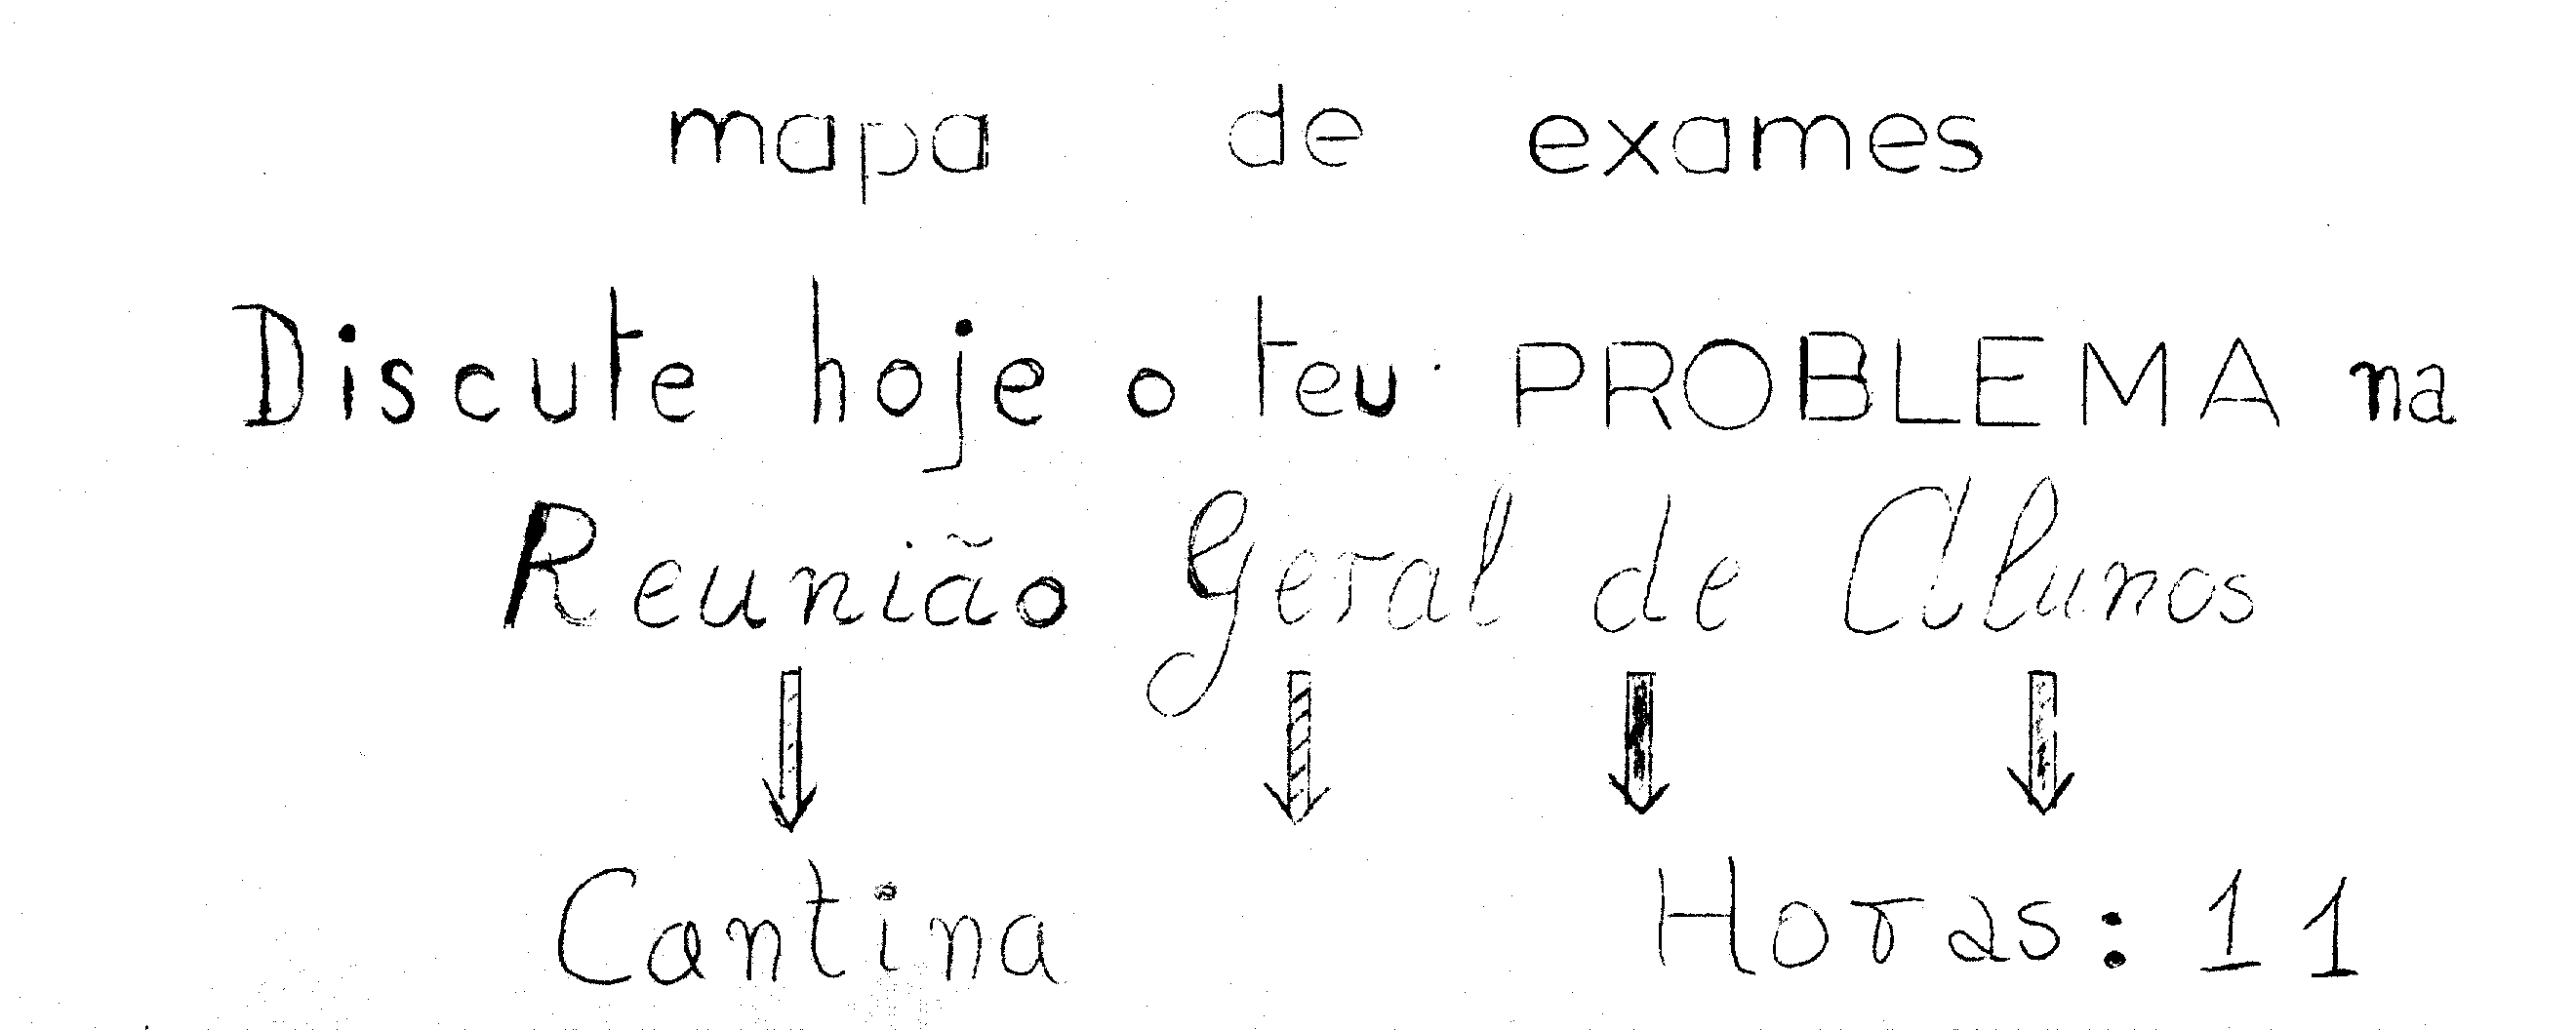 mapa de exames
Discute hoje o teu PROBLEMA na
Reunião Geral de Alunos
Cantina Horas: 11